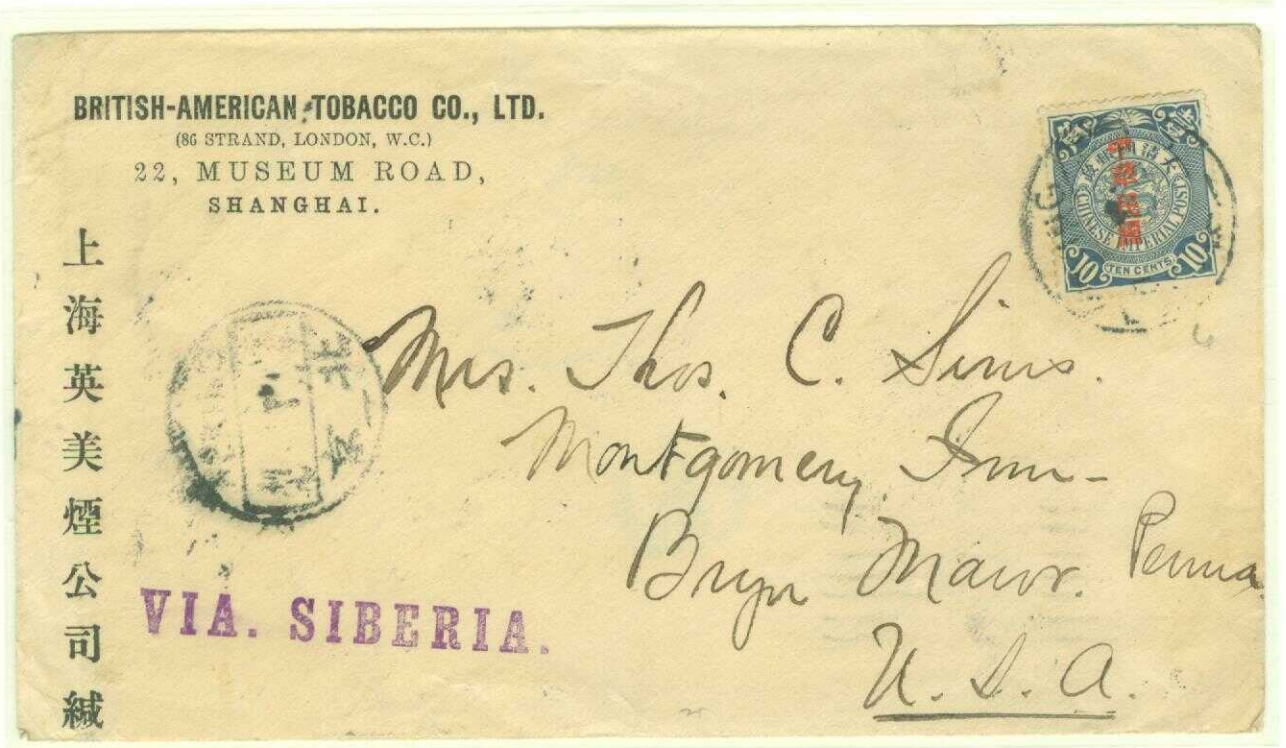 BRITISH-AMERICAN TOBACCO CO., LTD.
(86 STRAND, LONDON, W.C.)
22, MUSEUM ROAD,
SHANGHAI.
上海英美煙公司緘
中華民國
CHINESE IMPERIAL POST
10 TEN CENTS 10
北京
Mrs. Thos. C. Sims.
Montgomery Inn-
Bryn Mawr. Penna.
U.S.A.
VIA. SIBERIA.